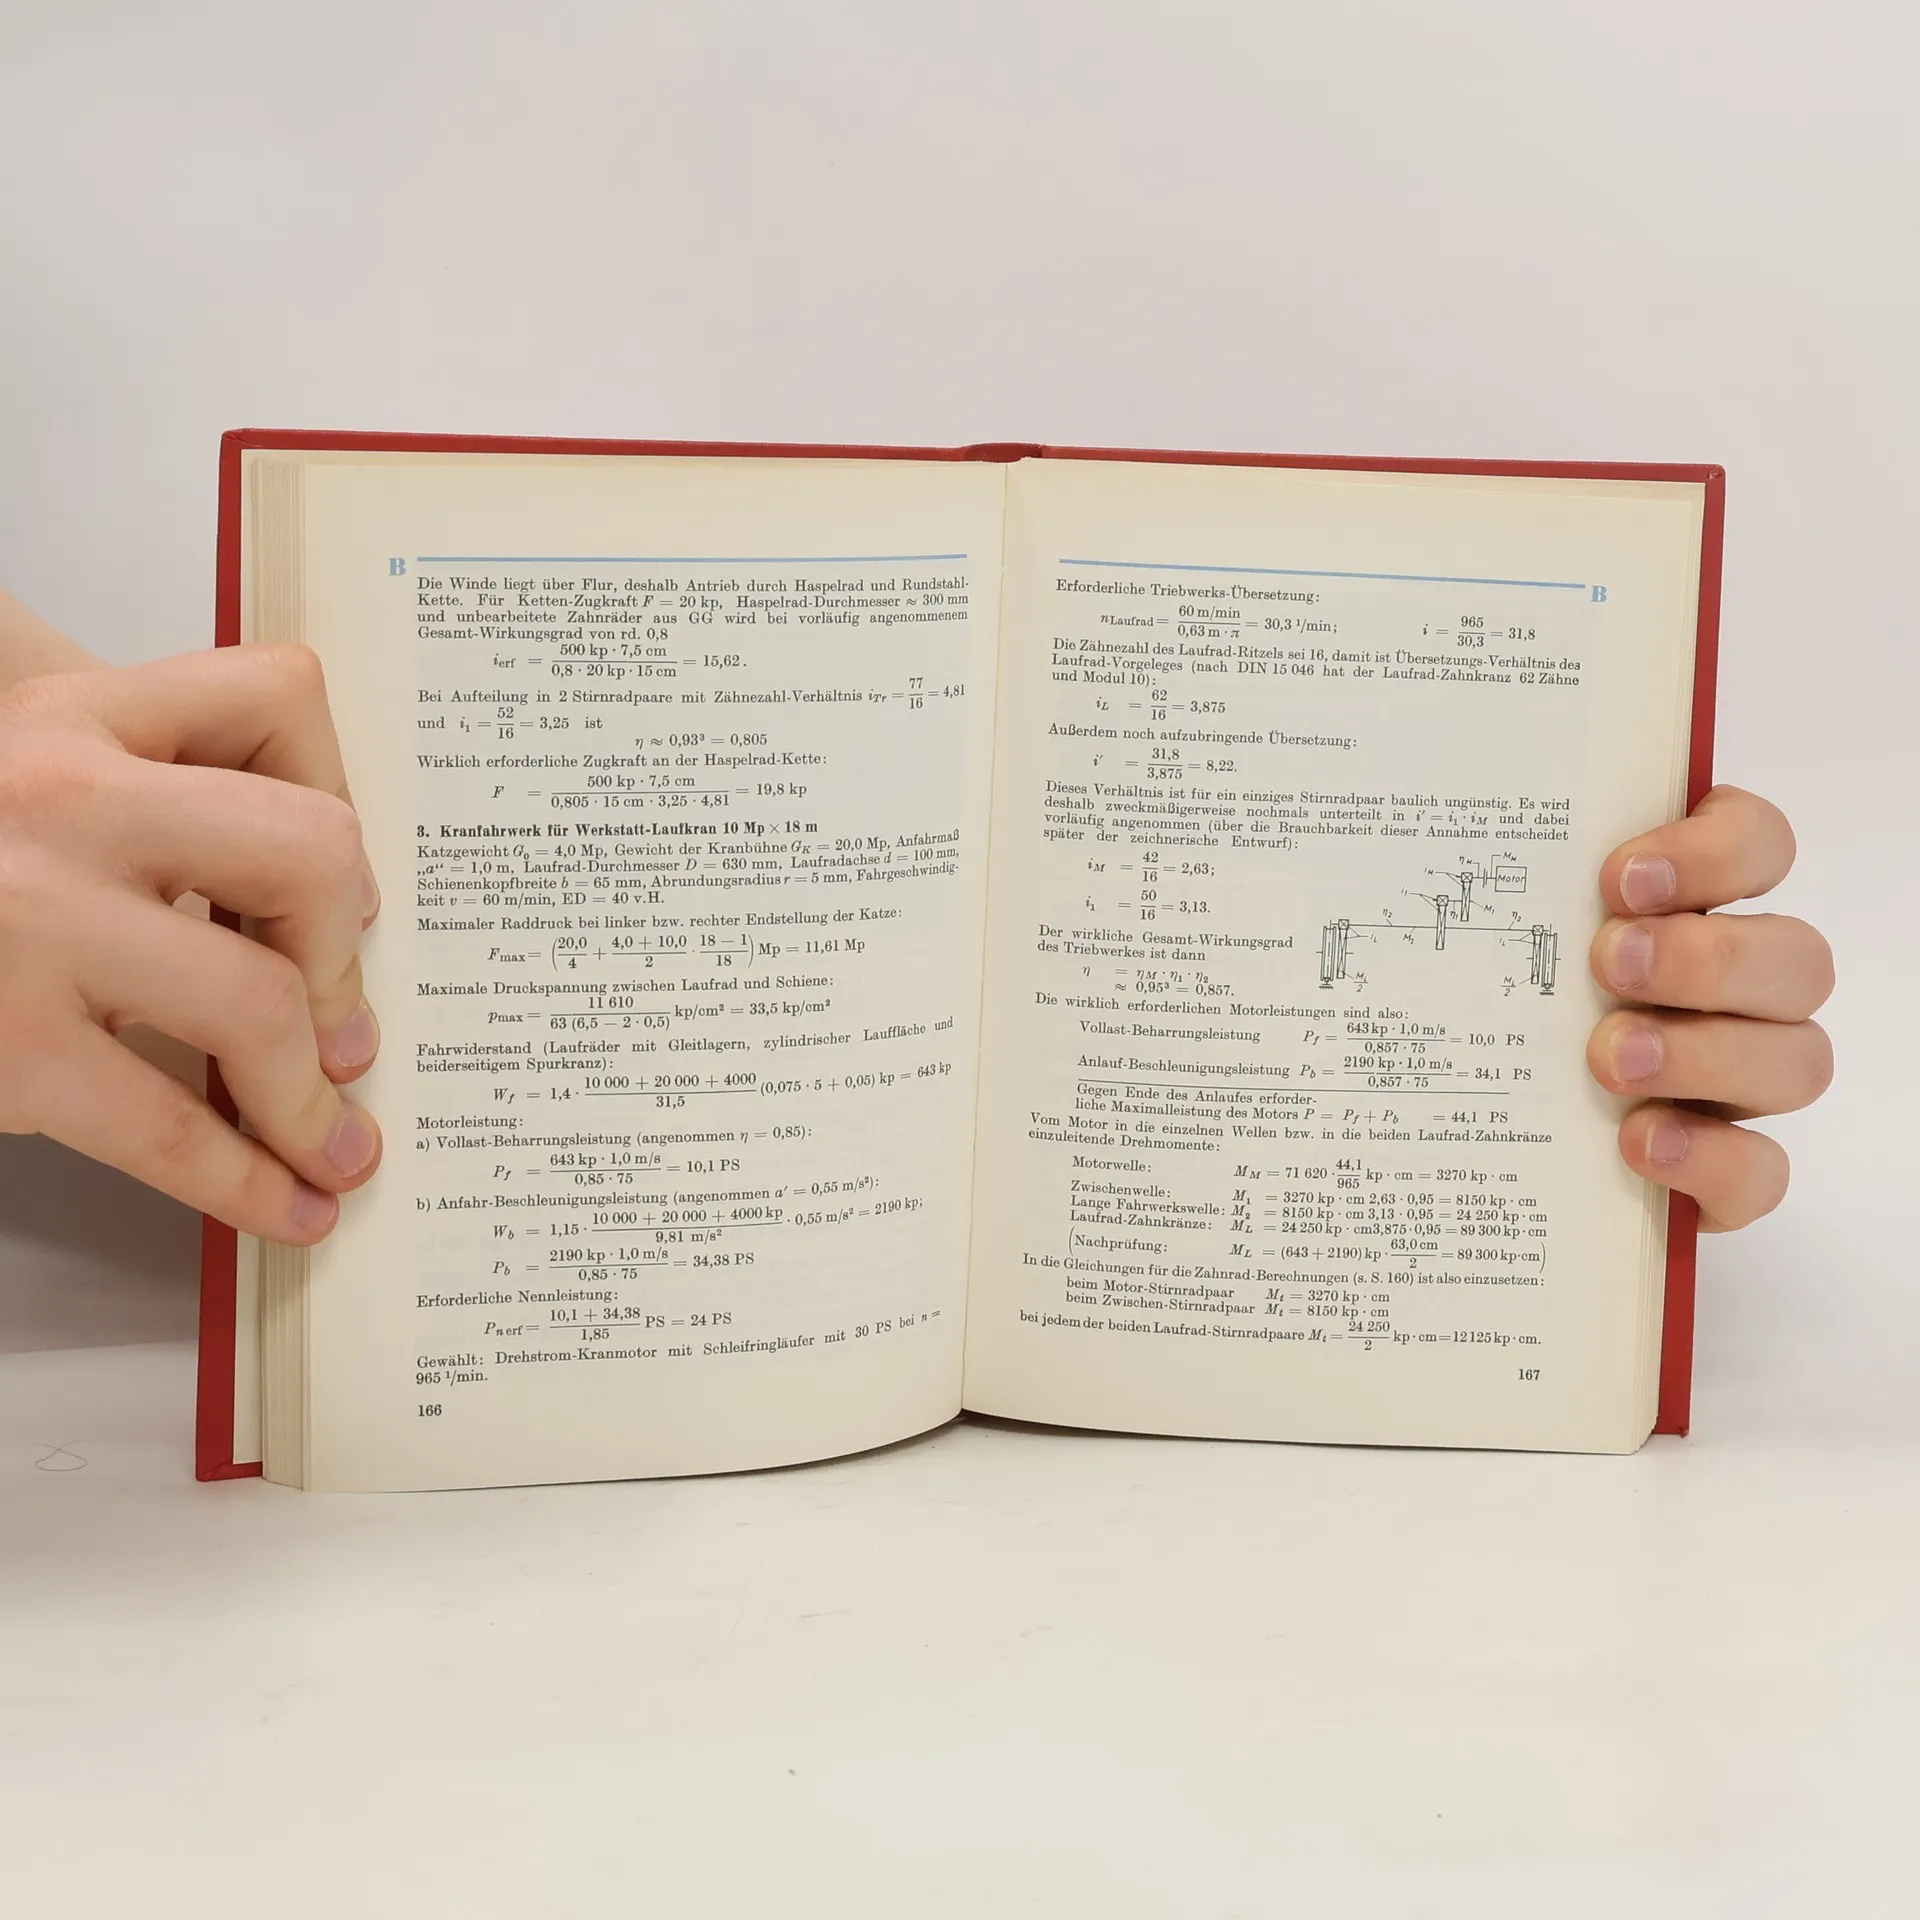 B
Die Winde liegt über Flur, deshalb Antrieb durch Haspelrad und Rundstahl-
Kette. Für Ketten-Zugkraft F = 20 kp, Haspelrad-Durchmesser ≈ 300 mm
und unbearbeitete Zahnräder aus GG wird bei vorläufig angenommenem
Gesamt-Wirkungsgrad von rd. 0,8
i_erf = (500 kp · 7,5 cm) / (0,8 · 20 kp · 15 cm) = 15,62.
Bei Aufteilung in 2 Stirnradpaare mit Zähnezahl-Verhältnis i_Tr = 77/16 = 4,81
und i₁ = 52/16 = 3,25 ist
η ≈ 0,93³ = 0,805
Wirklich erforderliche Zugkraft an der Haspelrad-Kette:
F = (500 kp · 7,5 cm) / (0,805 · 15 cm · 3,25 · 4,81) = 19,8 kp
3. Kranfahrwerk für Werkstatt-Laufkran 10 Mp × 18 m
Katzgewicht G₀ = 4,0 Mp, Gewicht der Kranbühne G_K = 20,0 Mp, Anfahrmaß
„a“ = 1,0 m, Laufrad-Durchmesser D = 630 mm, Laufradachse d = 100 mm,
Schienenkopfbreite b = 65 mm, Abrundungsradius r = 5 mm, Fahrgeschwindig-
keit v = 60 m/min, ED = 40 v.H.
Maximaler Raddruck bei linker bzw. rechter Endstellung der Katze:
F_max = (20,0/4 + (4,0 + 10,0)/2 · (18 − 1)/18) Mp = 11,61 Mp
Maximale Druckspannung zwischen Laufrad und Schiene:
p_max = 11 610 / (63 (6,5 − 2 · 0,5)) kp/cm² = 33,5 kp/cm²
Fahrwiderstand (Laufräder mit Gleitlagern, zylindrischer Lauffläche und
beiderseitigem Spurkranz):
W_f = 1,4 · (10 000 + 20 000 + 4000) / 31,5 (0,075 · 5 + 0,05) kp = 643 kp
Motorleistung:
a) Vollast-Beharrungsleistung (angenommen η = 0,85):
P_f = (643 kp · 1,0 m/s) / (0,85 · 75) = 10,1 PS
b) Anfahr-Beschleunigungsleistung (angenommen a′ = 0,55 m/s²):
W_b = 1,15 · (10 000 + 20 000 + 4000 kp) / (9,81 m/s²) · 0,55 m/s² = 2190 kp;
P_b = (2190 kp · 1,0 m/s) / (0,85 · 75) = 34,38 PS
Erforderliche Nennleistung:
P_n erf = (10,1 + 34,38) / 1,85 PS = 24 PS
Gewählt: Drehstrom-Kranmotor mit Schleifringläufer mit 30 PS bei n =
965 ¹/min.
166
B
Erforderliche Triebwerks-Übersetzung:
n_Laufrad = (60 m/min) / (0,63 m · π) = 30,3 ¹/min; i = 965/30,3 = 31,8
Die Zähnezahl des Laufrad-Ritzels sei 16, damit ist Übersetzungs-Verhältnis des
Laufrad-Vorgeleges (nach DIN 15 046 hat der Laufrad-Zahnkranz 62 Zähne
und Modul 10):
i_L = 62/16 = 3,875
Außerdem noch aufzubringende Übersetzung:
i′ = 31,8/3,875 = 8,22.
Dieses Verhältnis ist für ein einziges Stirnradpaar baulich ungünstig. Es wird
deshalb zweckmäßigerweise nochmals unterteilt in i′ = i₁ · i_M und dabei
vorläufig angenommen (über die Brauchbarkeit dieser Annahme entscheidet
später der zeichnerische Entwurf):
i_M = 42/16 = 2,63;
i₁ = 50/16 = 3,13.
Der wirkliche Gesamt-Wirkungsgrad
des Triebwerkes ist dann
η = η_M · η₁ · η₂
≈ 0,95³ = 0,857.
η_M M_M
i_M Motor
i₁ η₁ M₁
η₂ M₂ η₂
i_L i_L
M_L/2 M_L/2
Die wirklich erforderlichen Motorleistungen sind also:
Vollast-Beharrungsleistung P_f = (643 kp · 1,0 m/s) / (0,857 · 75) = 10,0 PS
Anlauf-Beschleunigungsleistung P_b = (2190 kp · 1,0 m/s) / (0,857 · 75) = 34,1 PS
Gegen Ende des Anlaufes erforder-
liche Maximalleistung des Motors P = P_f + P_b = 44,1 PS
Vom Motor in die einzelnen Wellen bzw. in die beiden Laufrad-Zahnkränze
einzuleitende Drehmomente:
Motorwelle: M_M = 71 620 · 44,1/965 kp · cm = 3270 kp · cm
Zwischenwelle: M₁ = 3270 kp · cm 2,63 · 0,95 = 8150 kp · cm
Lange Fahrwerkswelle: M₂ = 8150 kp · cm 3,13 · 0,95 = 24 250 kp · cm
Laufrad-Zahnkränze: M_L = 24 250 kp · cm 3,875 · 0,95 = 89 300 kp · cm
(Nachprüfung: M_L = (643 + 2190) kp · 63,0 cm/2 = 89 300 kp · cm)
In die Gleichungen für die Zahnrad-Berechnungen (s. S. 160) ist also einzusetzen:
beim Motor-Stirnradpaar M_t = 3270 kp · cm
beim Zwischen-Stirnradpaar M_t = 8150 kp · cm
bei jedem der beiden Laufrad-Stirnradpaare M_t = 24 250/2 kp · cm = 12 125 kp · cm.
167